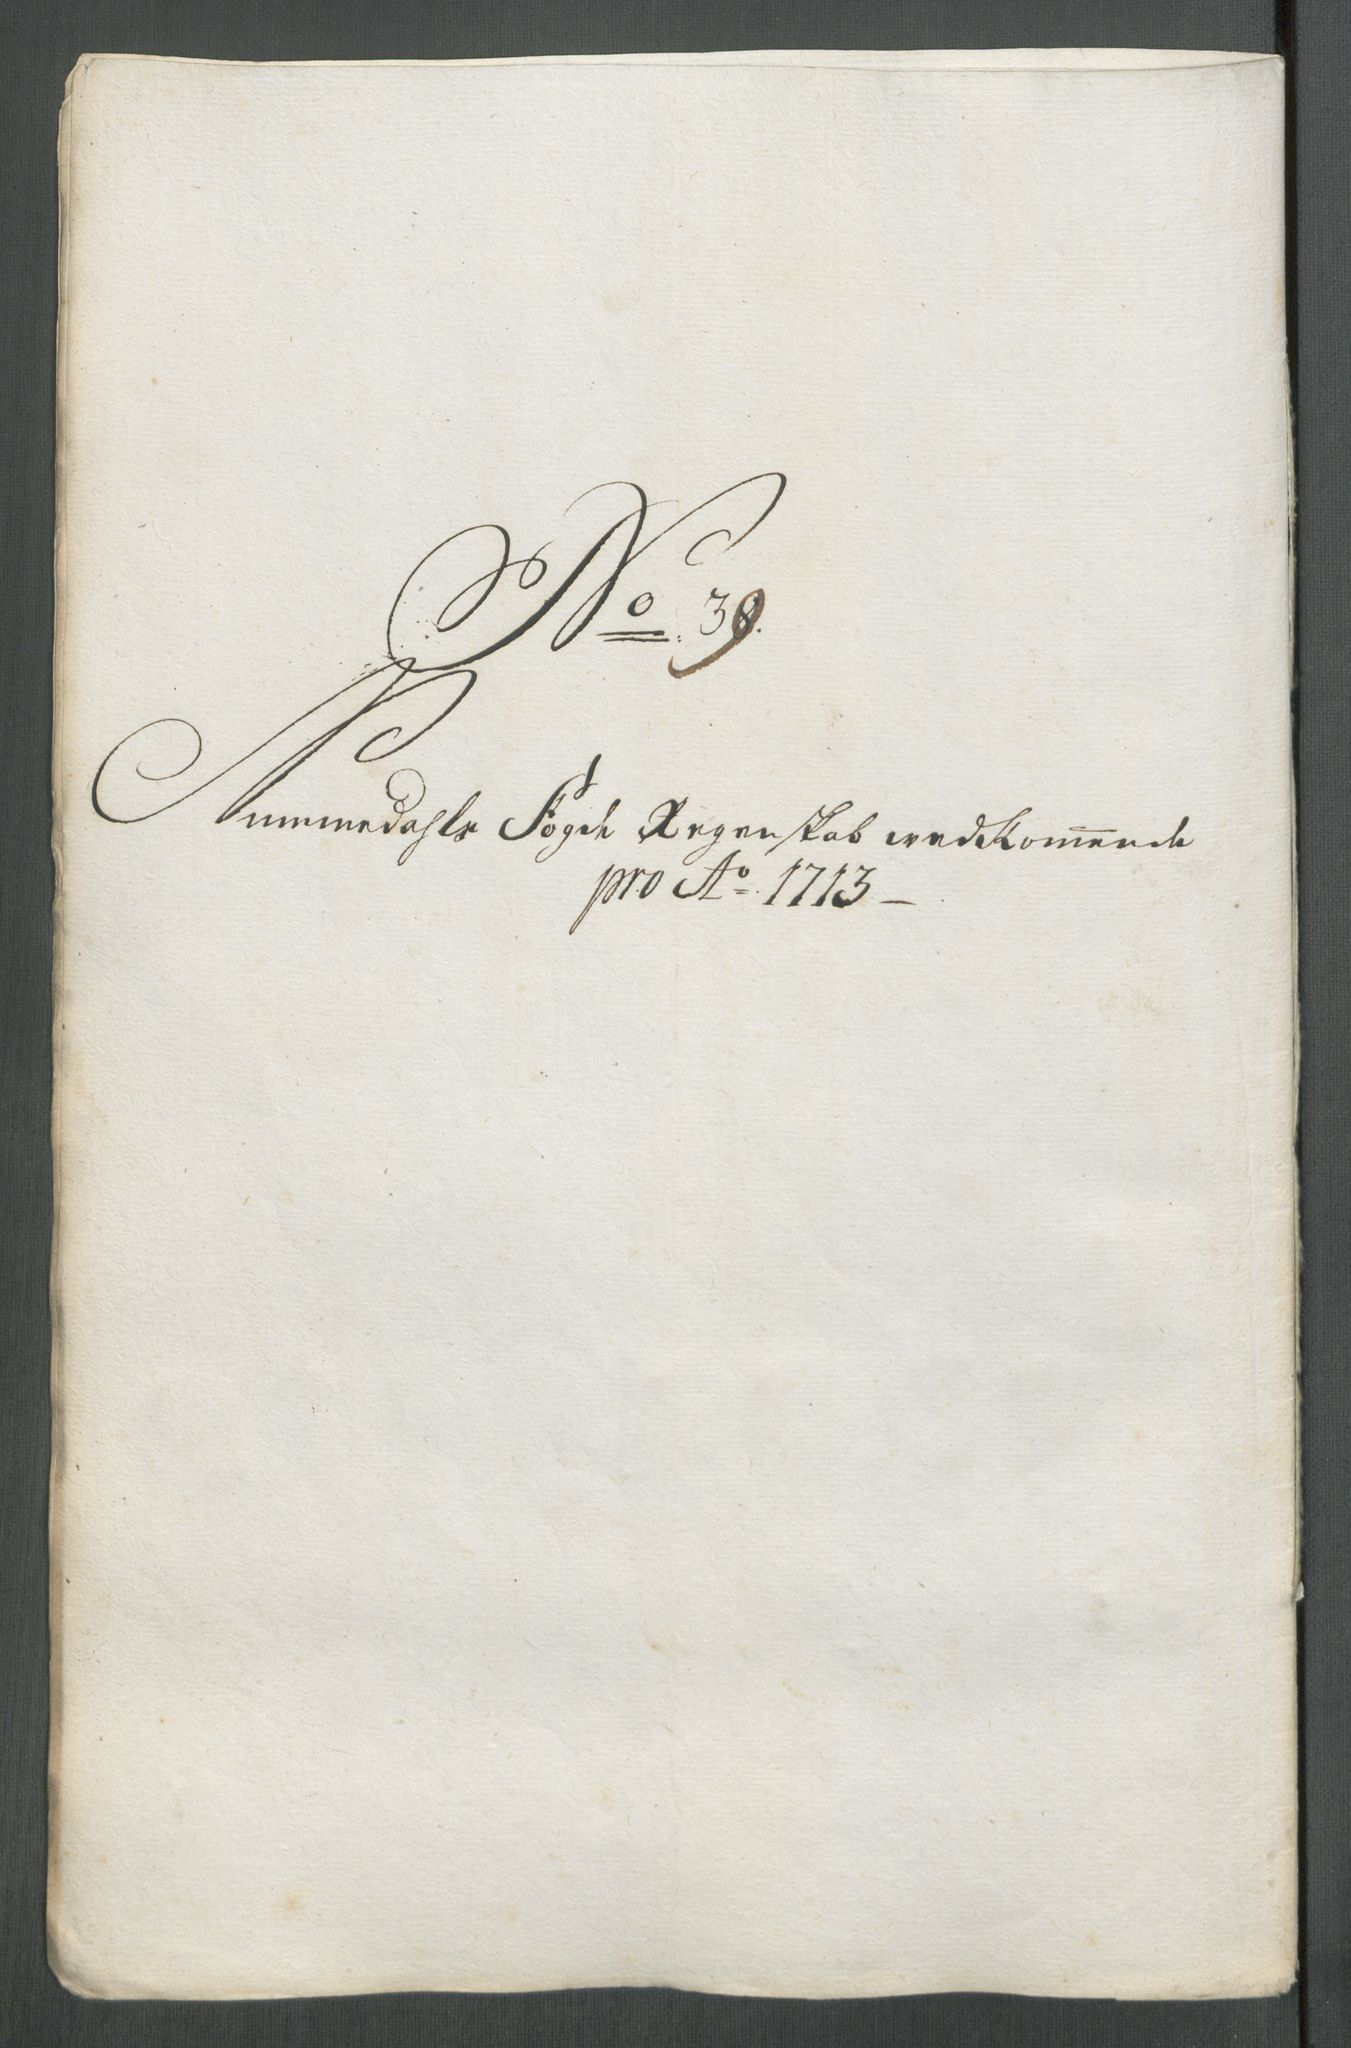 No. 39.
Nummedahls Fogde Regenskab vedkom̅ende
pro Ao. 1713 –